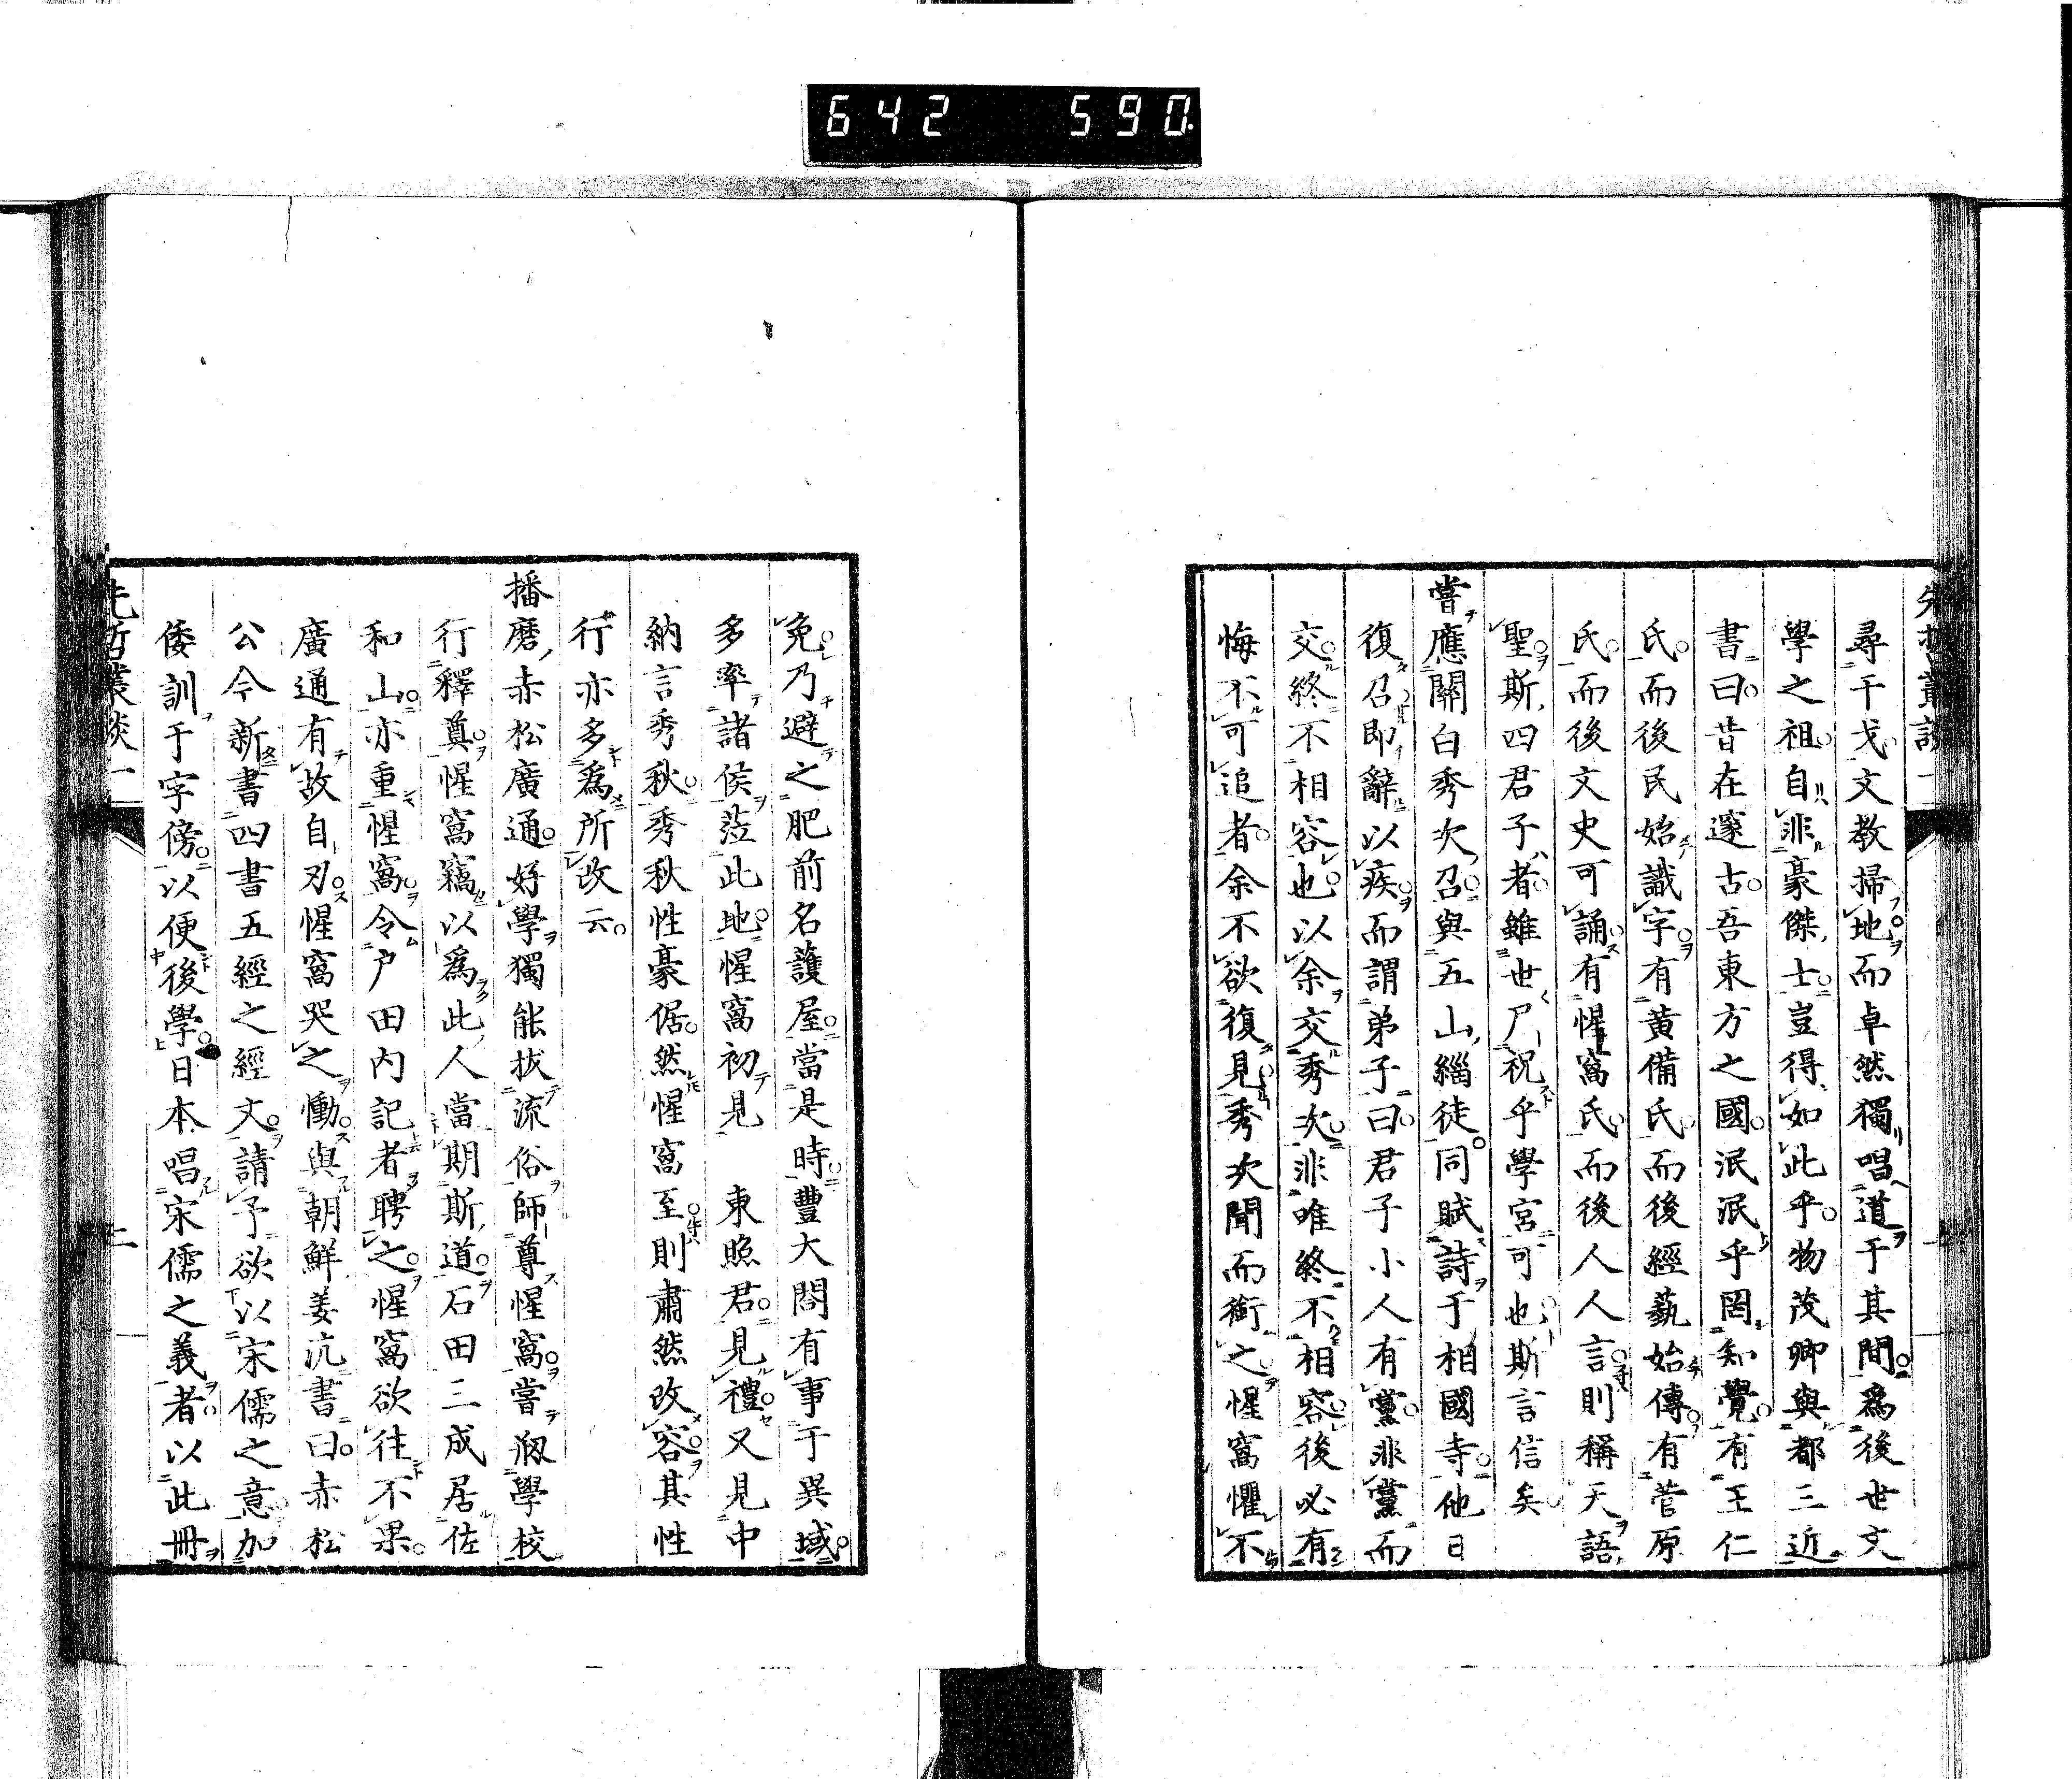 642 590
尋干戈文教掃地而卓然獨唱道于其間爲後世文
學之祖自非豪傑士豈得如此乎物茂卿與都三近
書曰昔在邃古吾東方之國泯泯乎罔知覺有王仁
氏而後民始識字有黃備氏而後經藝始傳有菅原
氏而後文史可誦有惺窩氏而後人人言則稱天語
聖斯四君子者雖世尸祝乎學宮可也斯言信矣
嘗應關白秀次召與五山緇徒同賦詩于相國寺他日
復召即辭以疾而謂弟子曰君子小人有黨非黨而
交終不相容也以余交秀次非唯終不相容後必有
悔不可追者余不欲復見秀次聞而銜之惺窩懼不
免乃避之肥前名護屋當是時豐大閤有事于異域
多率諸侯蒞此地惺窩初見 東照君見禮又見中
納言秀秋秀秋性豪倨然惺窩至則肅然改容其性
行亦多爲所改云
播磨赤松廣通好學獨能拔流俗師尊惺窩嘗剏學校
行釋奠惺窩竊以爲此人當期斯道石田三成居佐
和山亦重惺窩令戶田內記者聘之惺窩欲往不果
廣通有故自刃惺窩哭之慟與朝鮮姜沆書曰赤松
公今新書四書五經之經文請予欲以宋儒之意加
倭訓于字傍以便後學日本唱宋儒之義者以此冊
先哲叢談一 二